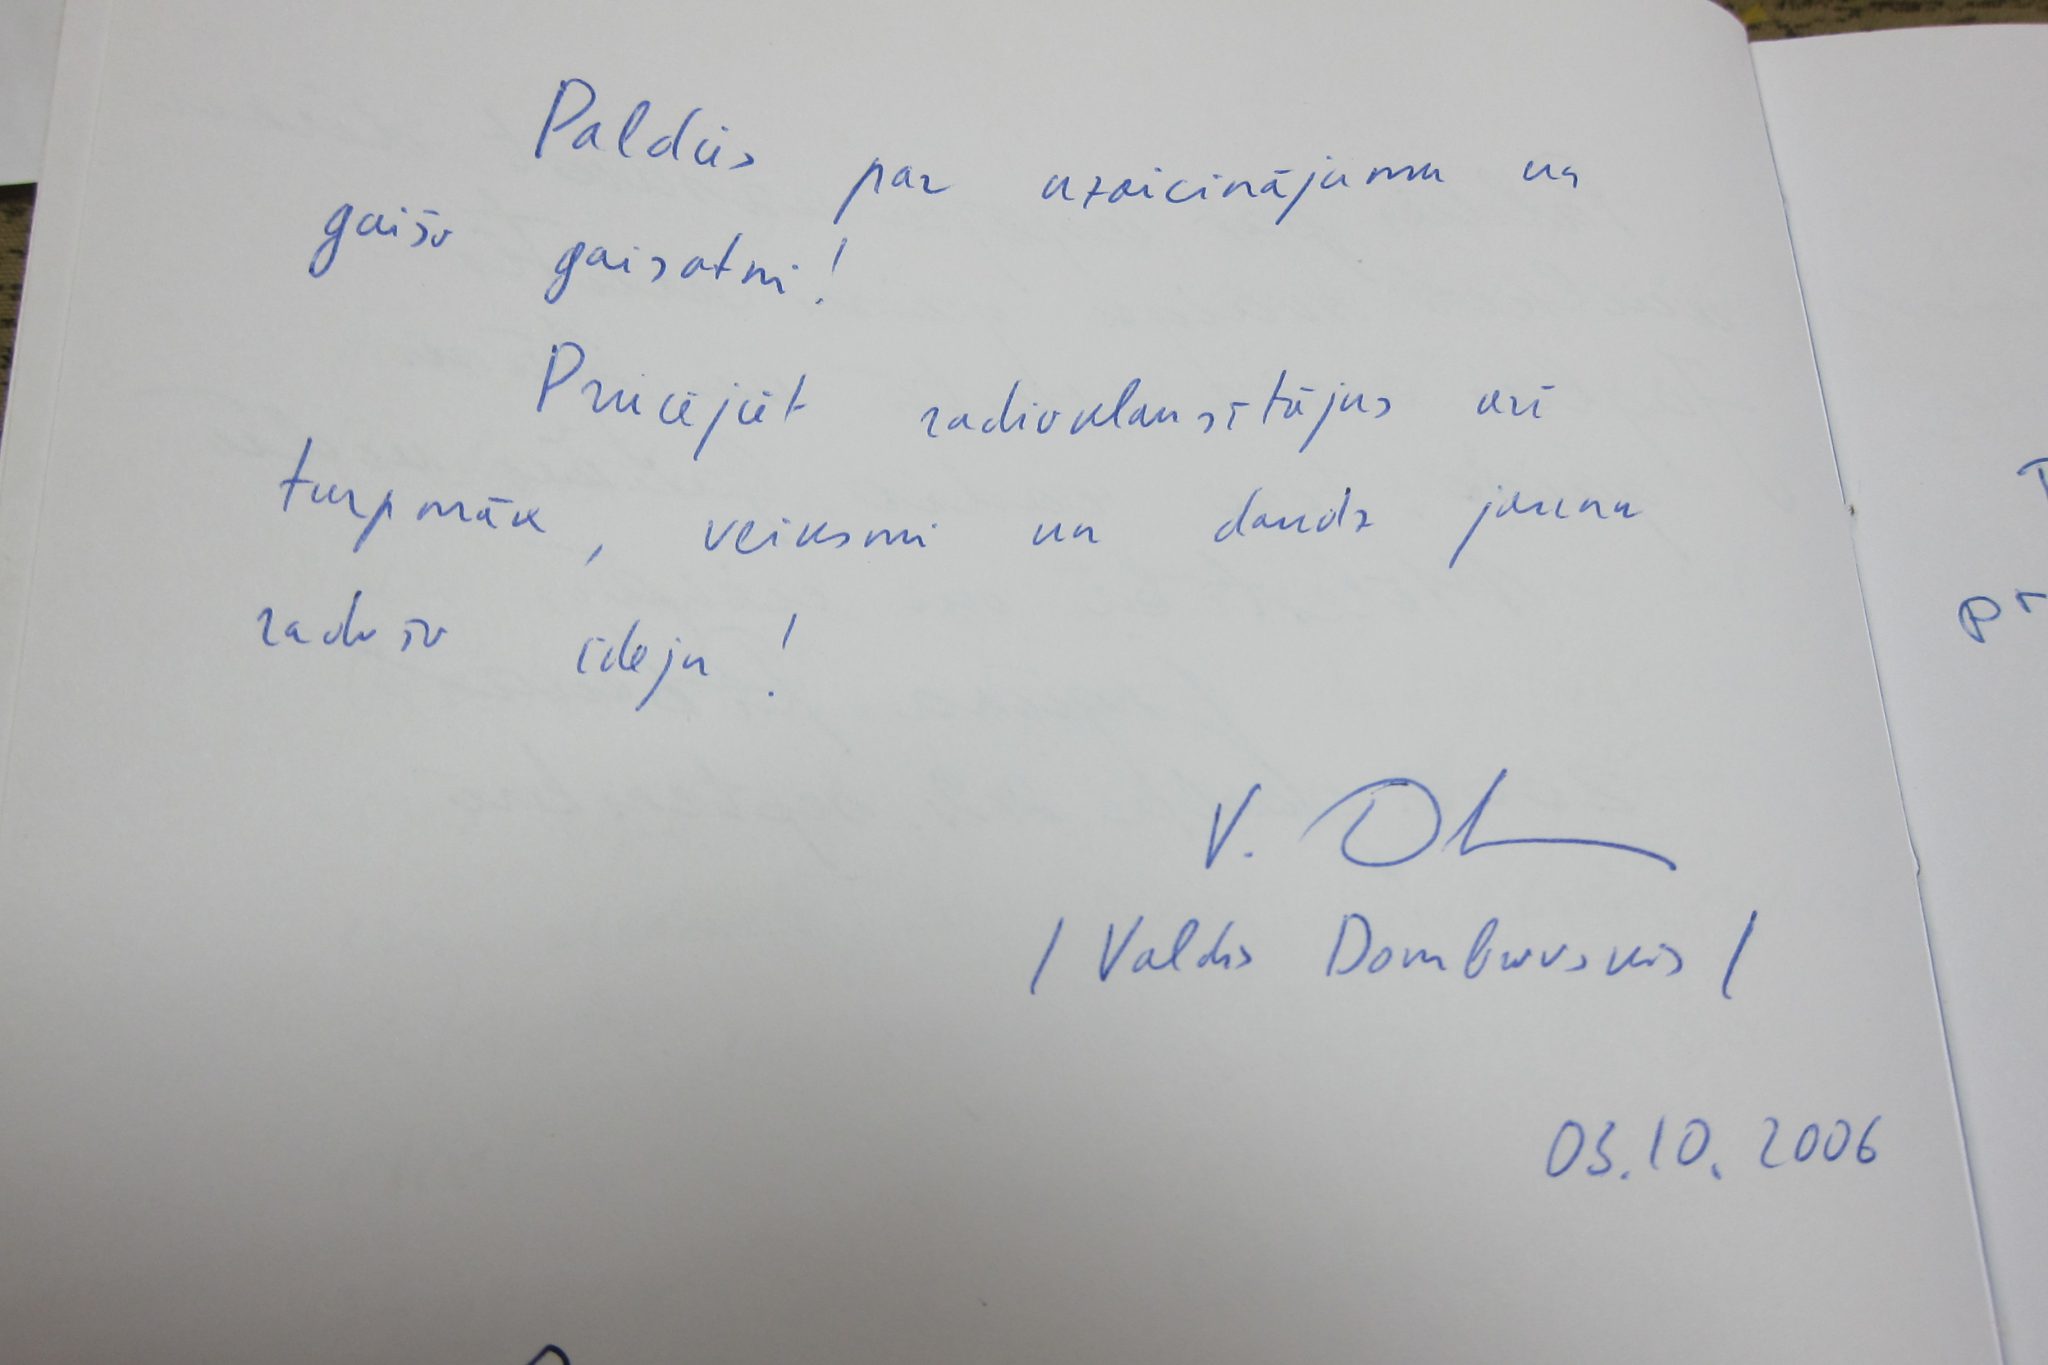 Paldies par uzaicinājumu un
gaišo gaisotni!
Priecējiet radioklausītājus arī
turpmāk, veiksmi un daudz jaunu
radošu ideju!
V. D
/ Valdis Dombrovskis /
03.10.2006